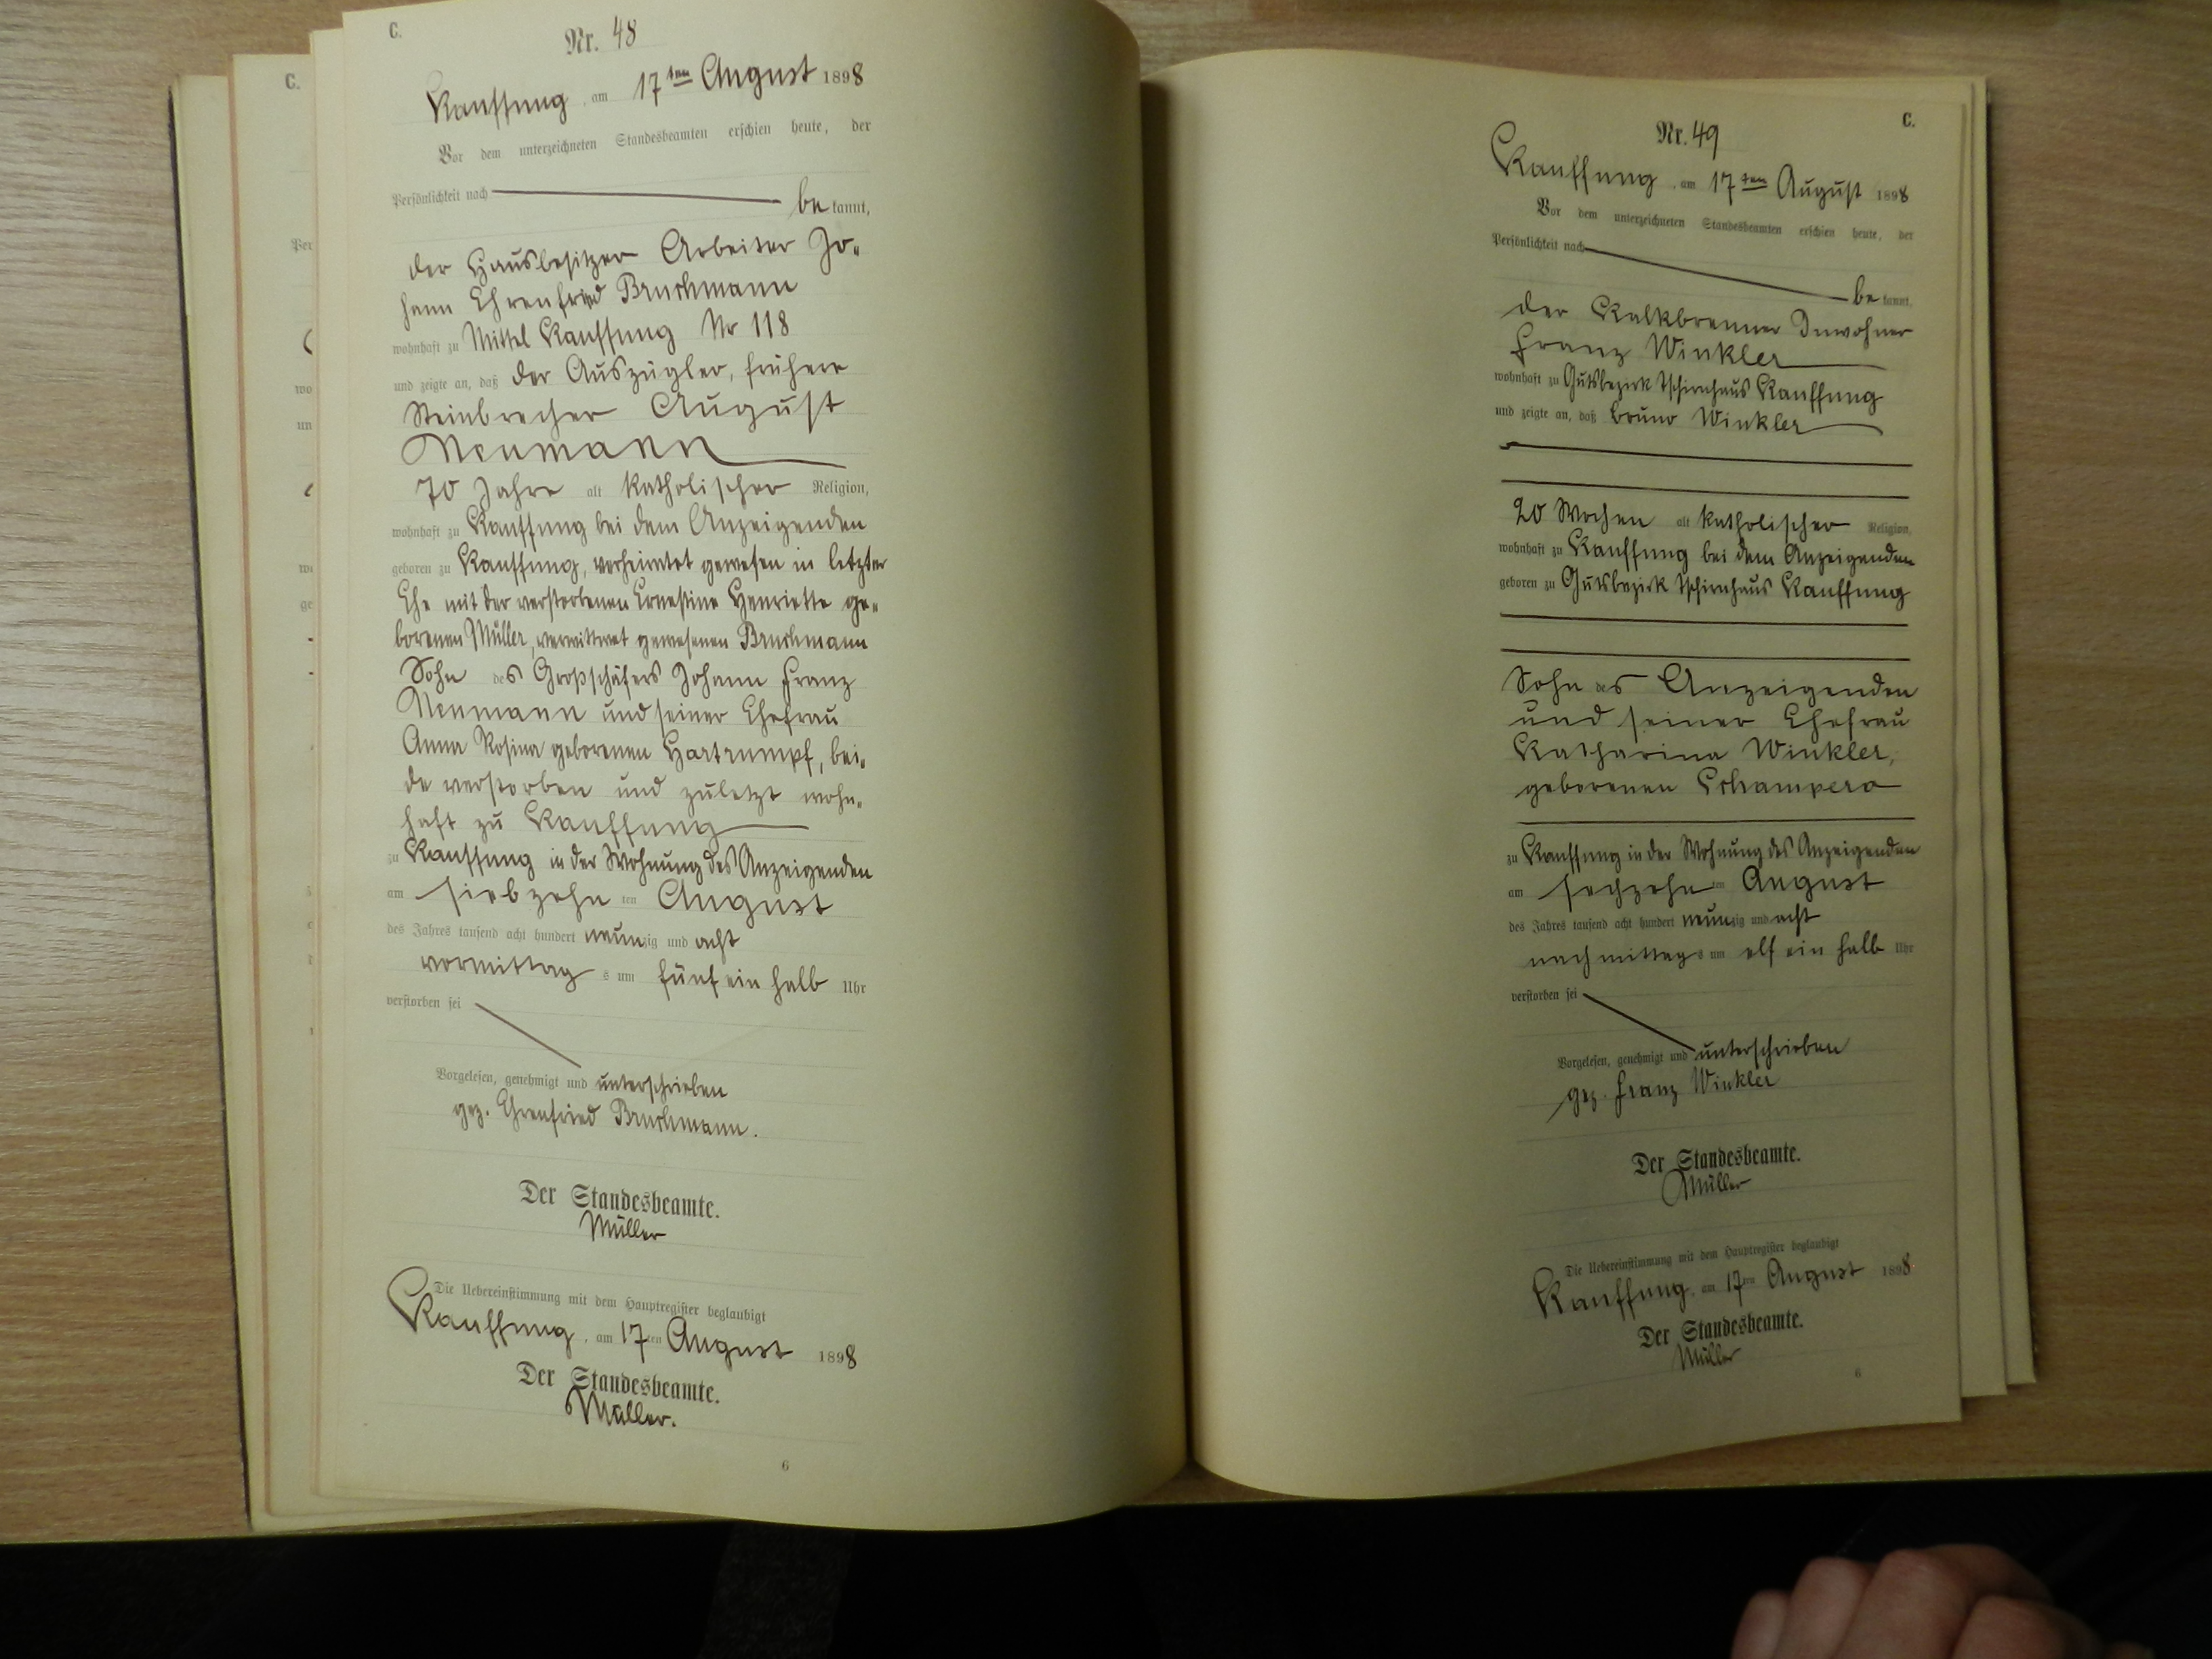 C.
Nr. 48
Kauffung, am 17ten August 1898
Vor dem unterzeichneten Standesbeamten erschien heute, der
Persönlichkeit nach
be kannt,
der Hausbesitzer Arbeiter Jo-
hann Ehrenfried Bruchmann
wohnhaft zu Mittel Kauffung Nr 118
und zeigte an, daß der Auszügler, früherer
Steinbrecher August
Neumann
70 Jahre alt katholischer Religion,
wohnhaft zu Kauffung bei dem Anzeigenden
geboren zu Kauffung, verheiratet gewesen in letzter
Ehe mit der verstorbenen Ernestine Henriette ge-
borenen Müller, verwittwet gewesenen Bruchmann
Sohn des Großschäfers Johann Franz
Neumann und seiner Ehefrau
Anna Rosina geborenen Hartrumpf, bei-
de verstorben und zuletzt wohn-
haft zu Kauffung
zu Kauffung in der Wohnung des Anzeigenden
am siebzehn ten August
des Jahres tausend acht hundert neunzig und acht
vormittag s um fünf ein halb Uhr
verstorben sei
Vorgelesen, genehmigt und unterschrieben
gez. Ehrenfried Bruchmann.
Der Standesbeamte.
Müller
Die Uebereinstimmung mit dem Hauptregister beglaubigt
Kauffung, am 17ten August 1898
Der Standesbeamte.
Müller.
6
C.
Nr. 49
Kauffung, am 17ten August 1898
Vor dem unterzeichneten Standesbeamten erschien heute, der
Persönlichkeit nach
be kannt,
der Kalkbrenner Inwohner
Franz Winkler
wohnhaft zu Gutsbezirk Tschirnhaus Kauffung
und zeigte an, daß Bruno Winkler
20 Wochen alt katholischer Religion,
wohnhaft zu Kauffung bei dem Anzeigenden
geboren zu Gutsbezirk Tschirnhaus Kauffung
Sohn des Anzeigenden
und seiner Ehefrau
Katharina Winkler,
geborenen Schampera
zu Kauffung in der Wohnung des Anzeigenden
am sechzehn ten August
des Jahres tausend acht hundert neunzig und acht
nachmittag s um elf ein halb Uhr
verstorben sei
Vorgelesen, genehmigt und unterschrieben
gez. Franz Winkler
Der Standesbeamte.
Müller
Die Uebereinstimmung mit dem Hauptregister beglaubigt
Kauffung, am 17ten August 1898
Der Standesbeamte.
Müller
6